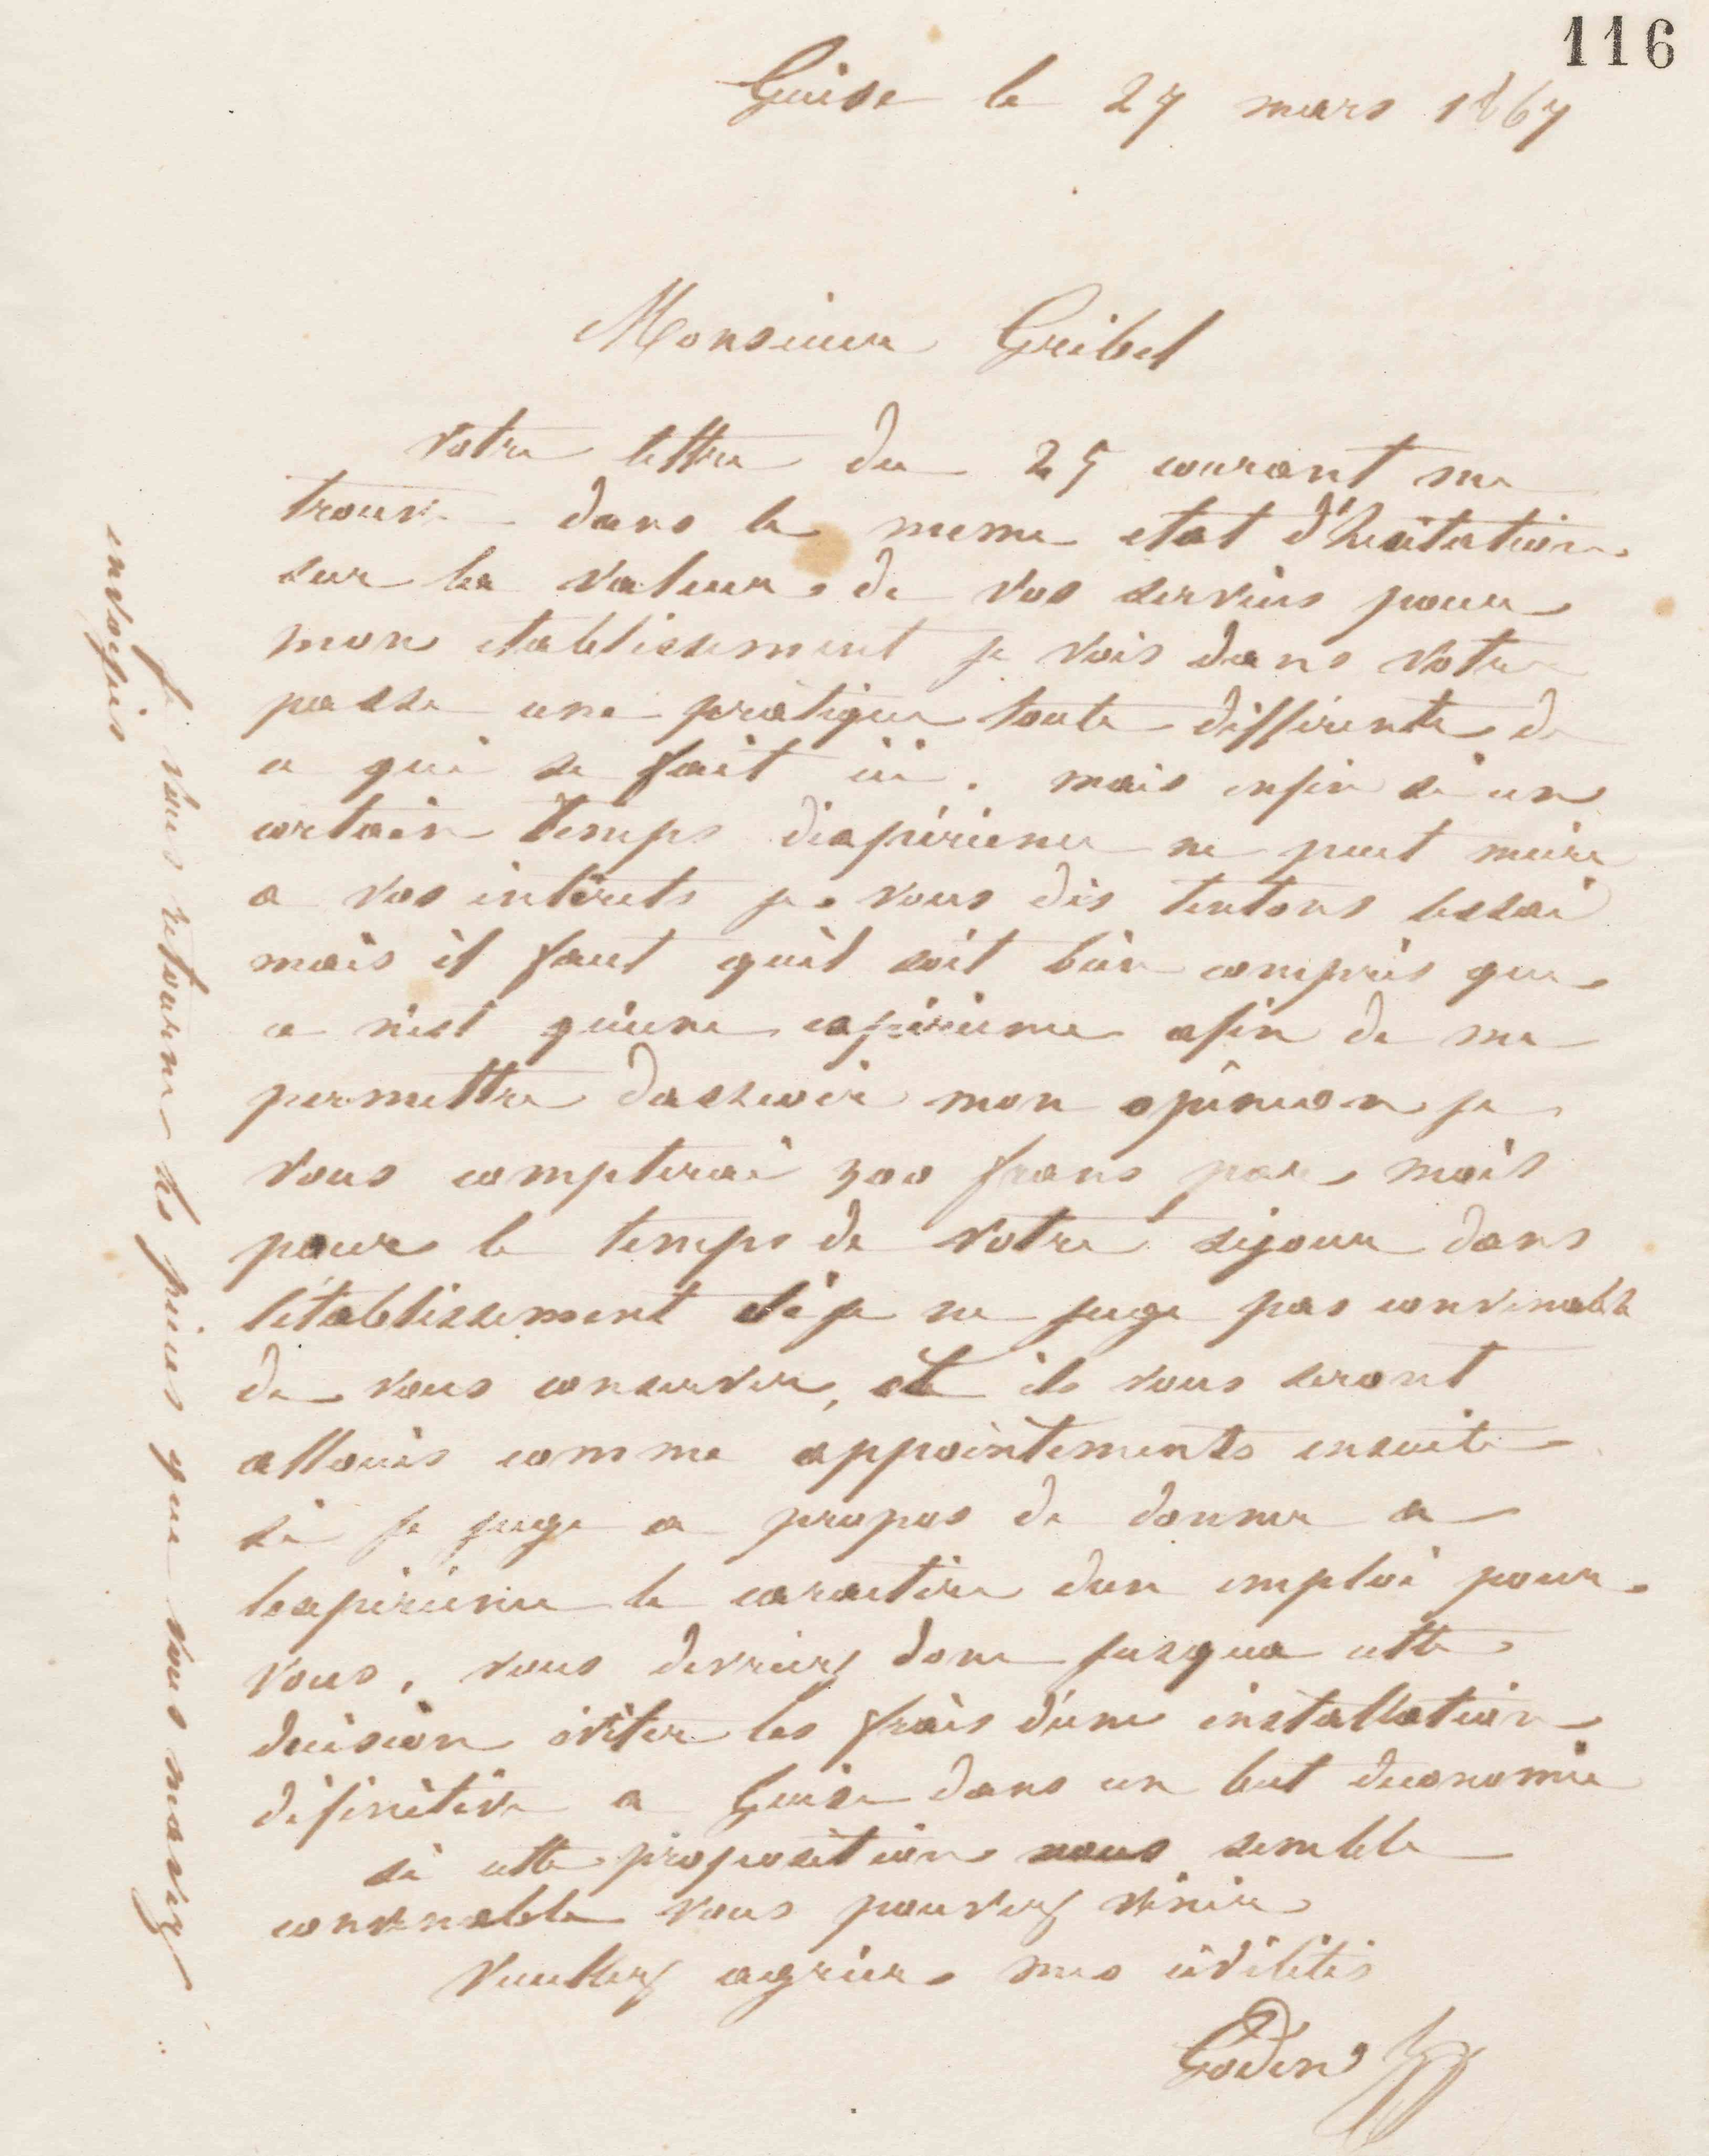 116
Guise le 27 mars 1867
Monsieur Gribel
votre lettre du 25 courant me
trouve dans le meme etat d'hésitation
sur la valeur de vos services pour
mon etablissement je vois dans votre
passe une pratique toute differente de
ce qui se fait ici. mais enfin si un
certain temps d'expérience ne peut nuire
a vos intérets je vous dis tentons lessai
mais il faut quil soit bien compris que
ce n'est qu'une expérience afin de me
permettre dasseoir mon opinion je
vous compterai 300 francs par mois
pour le temps de votre séjour dans
l'établissement si je ne juge pas convenable
de vous conserver, et ils vous seront
alloués comme appointements ensuite
si je juge a propos de donner a
lexpérience le caractère dun emploi pour
vous, vous devriez donc jusqua cette
decision éviter les frais d'une installation
définitive a Guise dans un but deconomie
si cette proposition vous semble
convenable vous pouvez venir
veuillez agréer mes civilités
Godin
je vous retourne les pièces que vous m'avez
envoyées